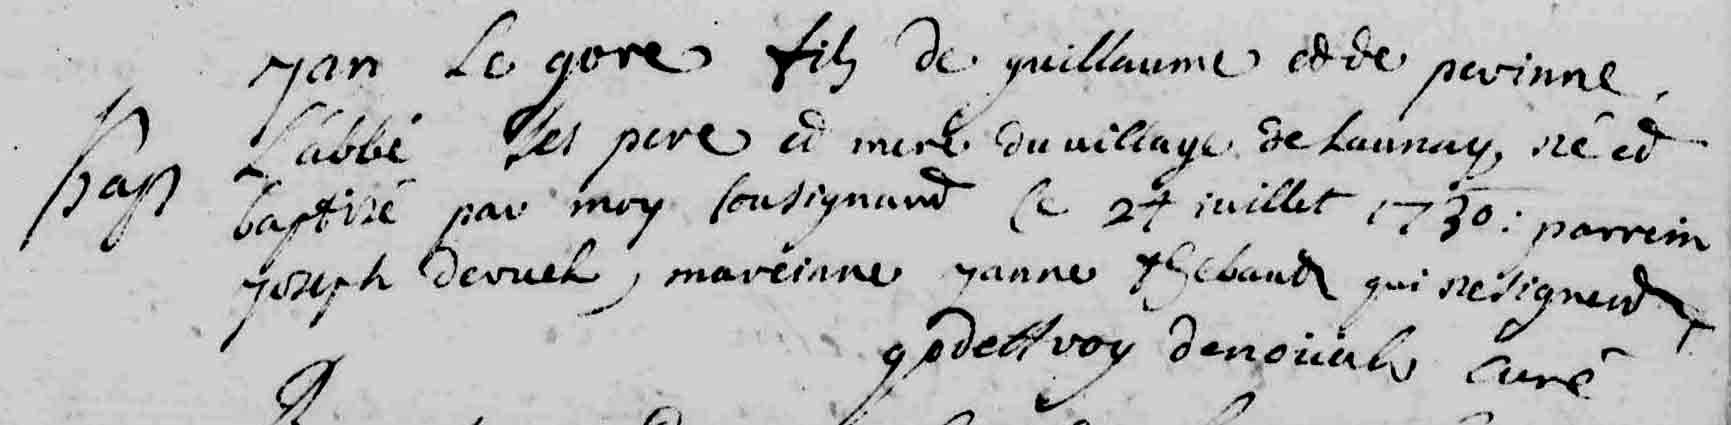 yan Le gore fils de guillaume et de perinne
bap L'abbé ses pere et mere du village de Launay, né et
baptisé par moy sousignant le 24 juillet 1730: parrein
joseph mareinne yanne thebaud qui ne signent
curé